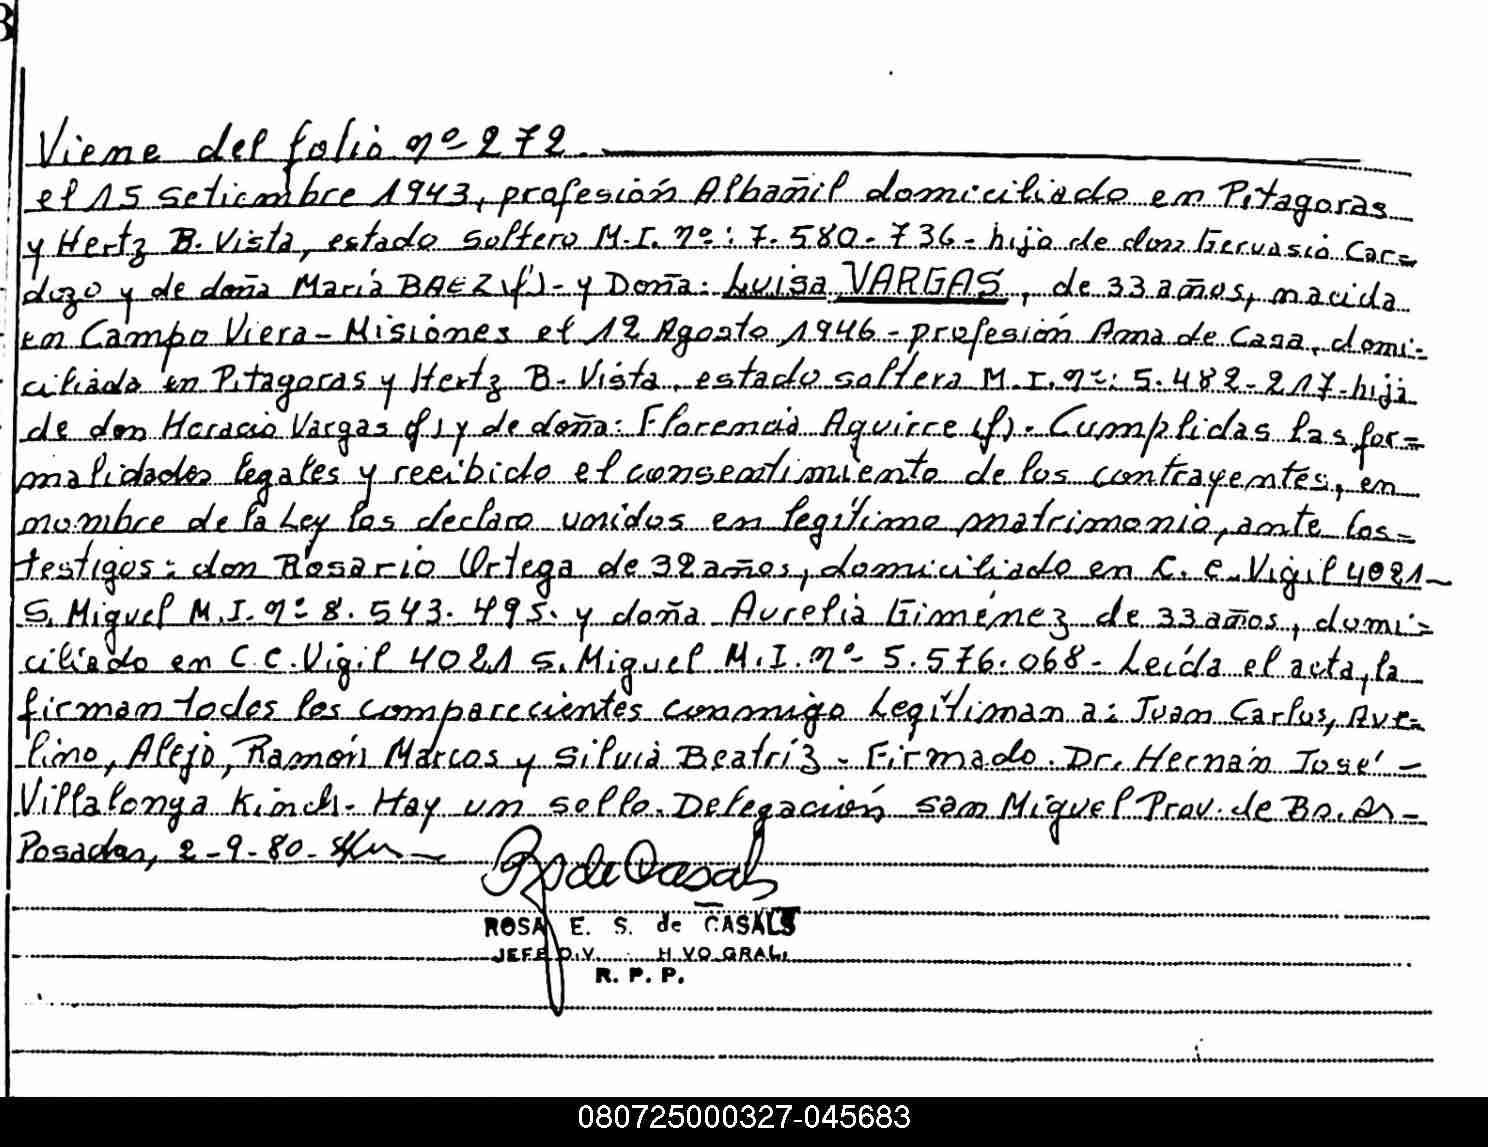 Viene del folio nº 272.
el 15 setiembre 1943, profesión Albañil domiciliado en Pitagoras
y Hertz B. Vista, estado soltero M.I. nº: 7.580-736- hijo de don Gervasio Car=
dozo y de doña María BAEZ (f)- y Doña: Luisa VARGAS, de 33 años, nacida
en Campo Viera-Misiones el 12 Agosto 1946- profesión Ama de Casa, domi=
ciliada en Pitagoras y Hertz B. Vista, estado soltera M.I. nº: 5.482-217-hija
de don Horacio Vargas (f) y de doña: Florencia Aguirre (f). Cumplidas las for=
malidades legales y recibido el consentimiento de los contrayentes, en
nombre de la Ley los declaro unidos en legítimo matrimonio, ante los=
testigos: don Rosario Ortega de 32 años, domiciliado en C. C. Vigil 4021-
S. Miguel M.I. nº 8.543.495. y doña Aurelia Giménez de 33 años, domi=
ciliado en C.C. Vigil 4021 S. Miguel M.I. nº 5.576.068- Leída el acta, la
firman todos los comparecientes conmigo Legítiman a: Juan Carlos, Ave=
lino, Alejo, Ramón Marcos y Silvia Beatríz- Firmado. Dr. Hernán José-
Villalonga Kinch. Hay un sello. Delegación san Miguel Prov. de Bs. As-
Posadas, 2-9-80-
ROSA E. S. de CASALS
JEFE DIV. GRAL.
R. P. P.
080725000327-045683